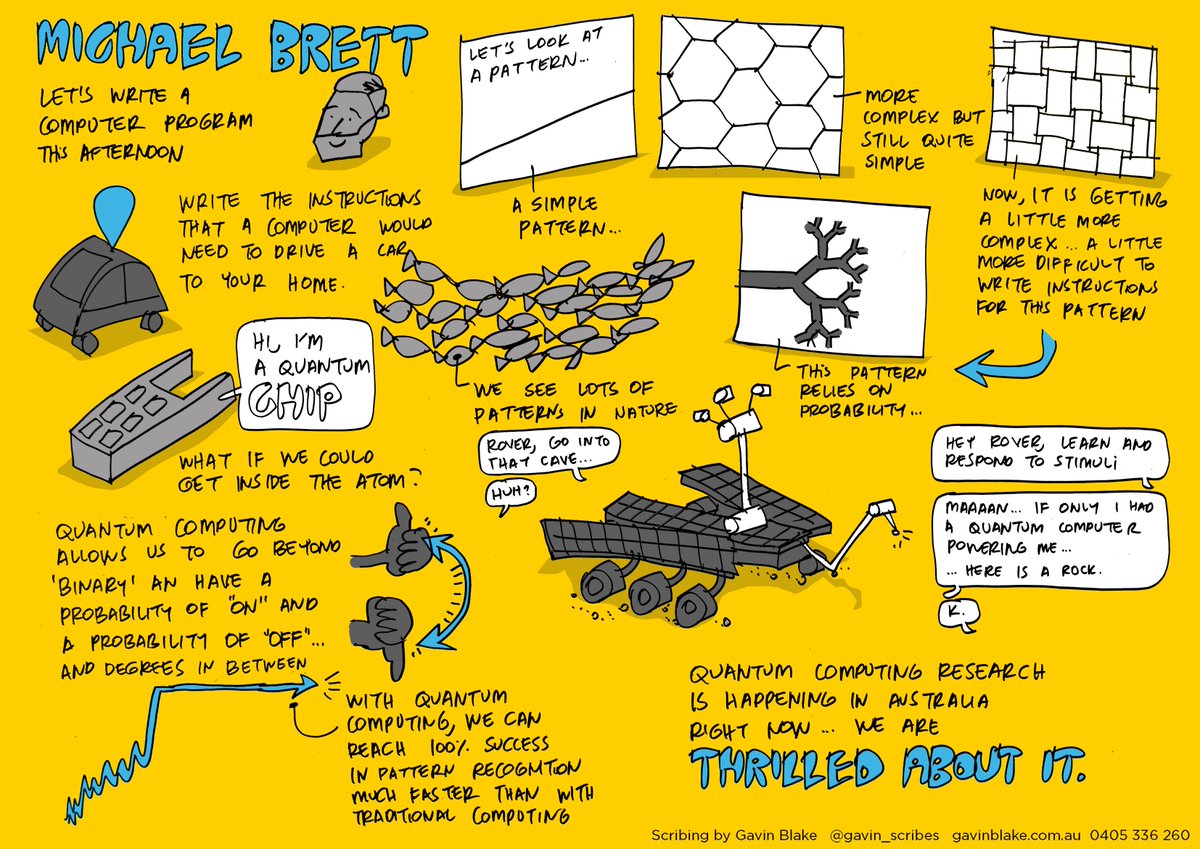 MICHAEL BRETT
LET'S WRITE A
COMPUTER PROGRAM
THIS AFTERNOON
LET'S LOOK AT
A PATTERN...
A SIMPLE
PATTERN...
MORE
COMPLEX BUT
STILL QUITE
SIMPLE
NOW, IT IS GETTING
A LITTLE MORE
COMPLEX... A LITTLE
MORE DIFFICULT TO
WRITE INSTRUCTIONS
FOR THIS PATTERN
WRITE THE INSTRUCTIONS
THAT A COMPUTER WOULD
NEED TO DRIVE A CAR
TO YOUR HOME.
THIS PATTERN
RELIES ON
PROBABILITY...
WE SEE LOTS OF
PATTERNS IN NATURE
HI, I'M
A QUANTUM
CHIP
WHAT IF WE COULD
GET INSIDE THE ATOM?
ROVER, GO INTO
THAT CAVE...
HUH?
HEY ROVER, LEARN AND
RESPOND TO STIMULI
MAAAAN... IF ONLY I HAD
A QUANTUM COMPUTER
POWERING ME...
... HERE IS A ROCK.
K.
QUANTUM COMPUTING
ALLOWS US TO GO BEYOND
'BINARY' AN HAVE A
PROBABILITY OF "ON" AND
A PROBABILITY OF "OFF"...
AND DEGREES IN BETWEEN
WITH QUANTUM
COMPUTING, WE CAN
REACH 100% SUCCESS
IN PATTERN RECOGNITION
MUCH FASTER THAN WITH
TRADITIONAL COMPUTING
QUANTUM COMPUTING RESEARCH
IS HAPPENING IN AUSTRALIA
RIGHT NOW... WE ARE
THRILLED ABOUT IT.
Scribing by Gavin Blake @gavin_scribes gavinblake.com.au 0405 336 260